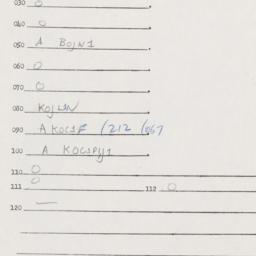 030 0
040 0
050 A BOJN1
060 0
070 0
080 KOJLN
090 A KOCSF (212 (067
100 A KOCSPY1
110 0
111 0 112 0
120 —